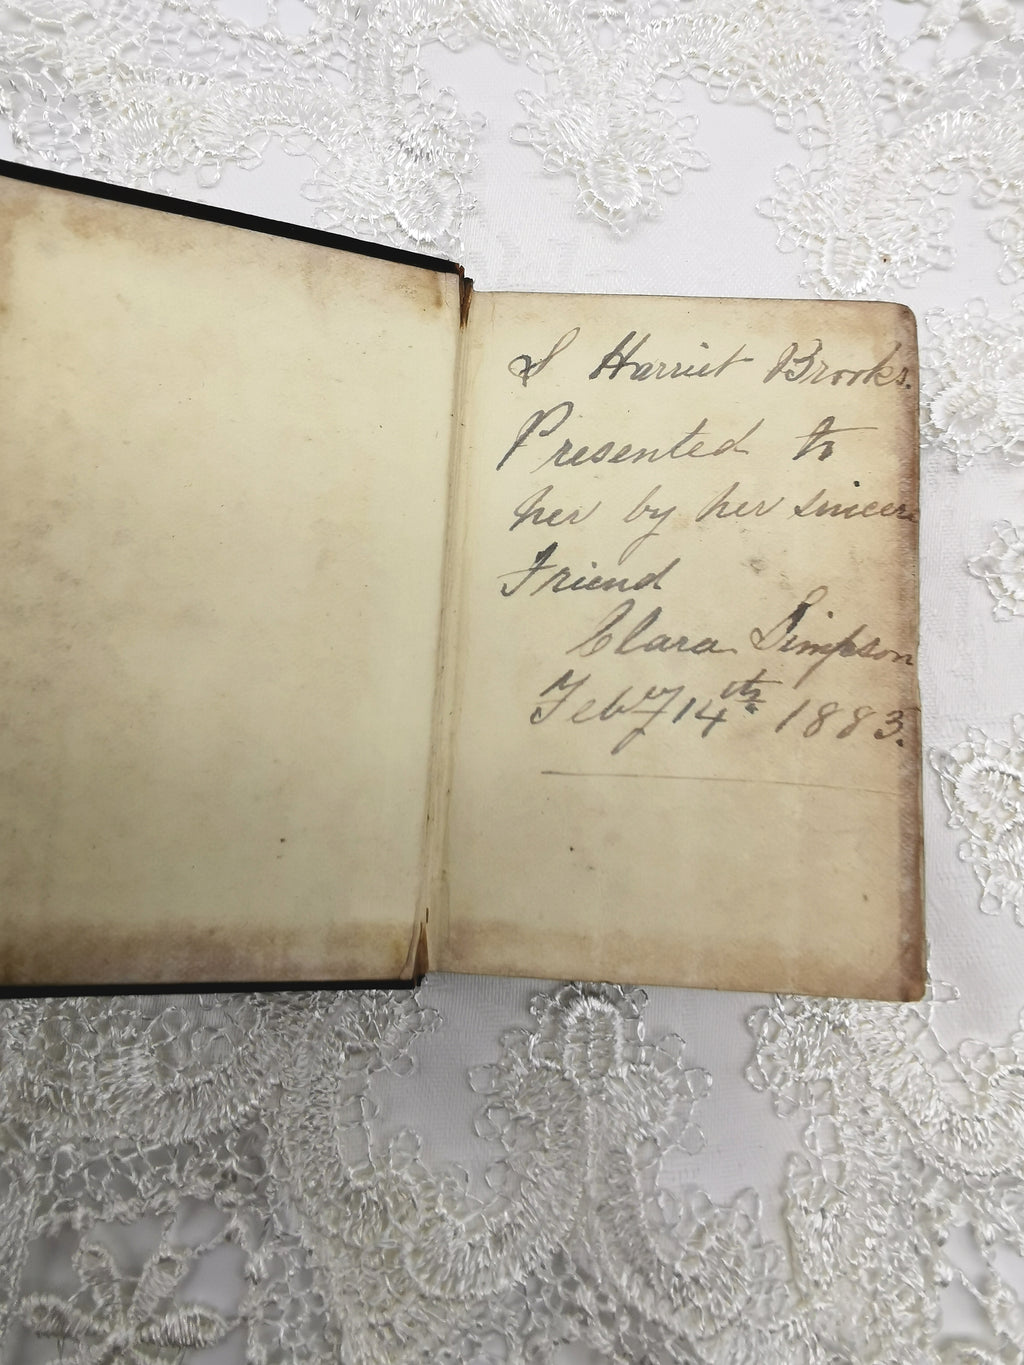 S Harriet Brooks.
Presented to
her by her sincere
Friend
Clara Simpson
Feby 14th 1883.